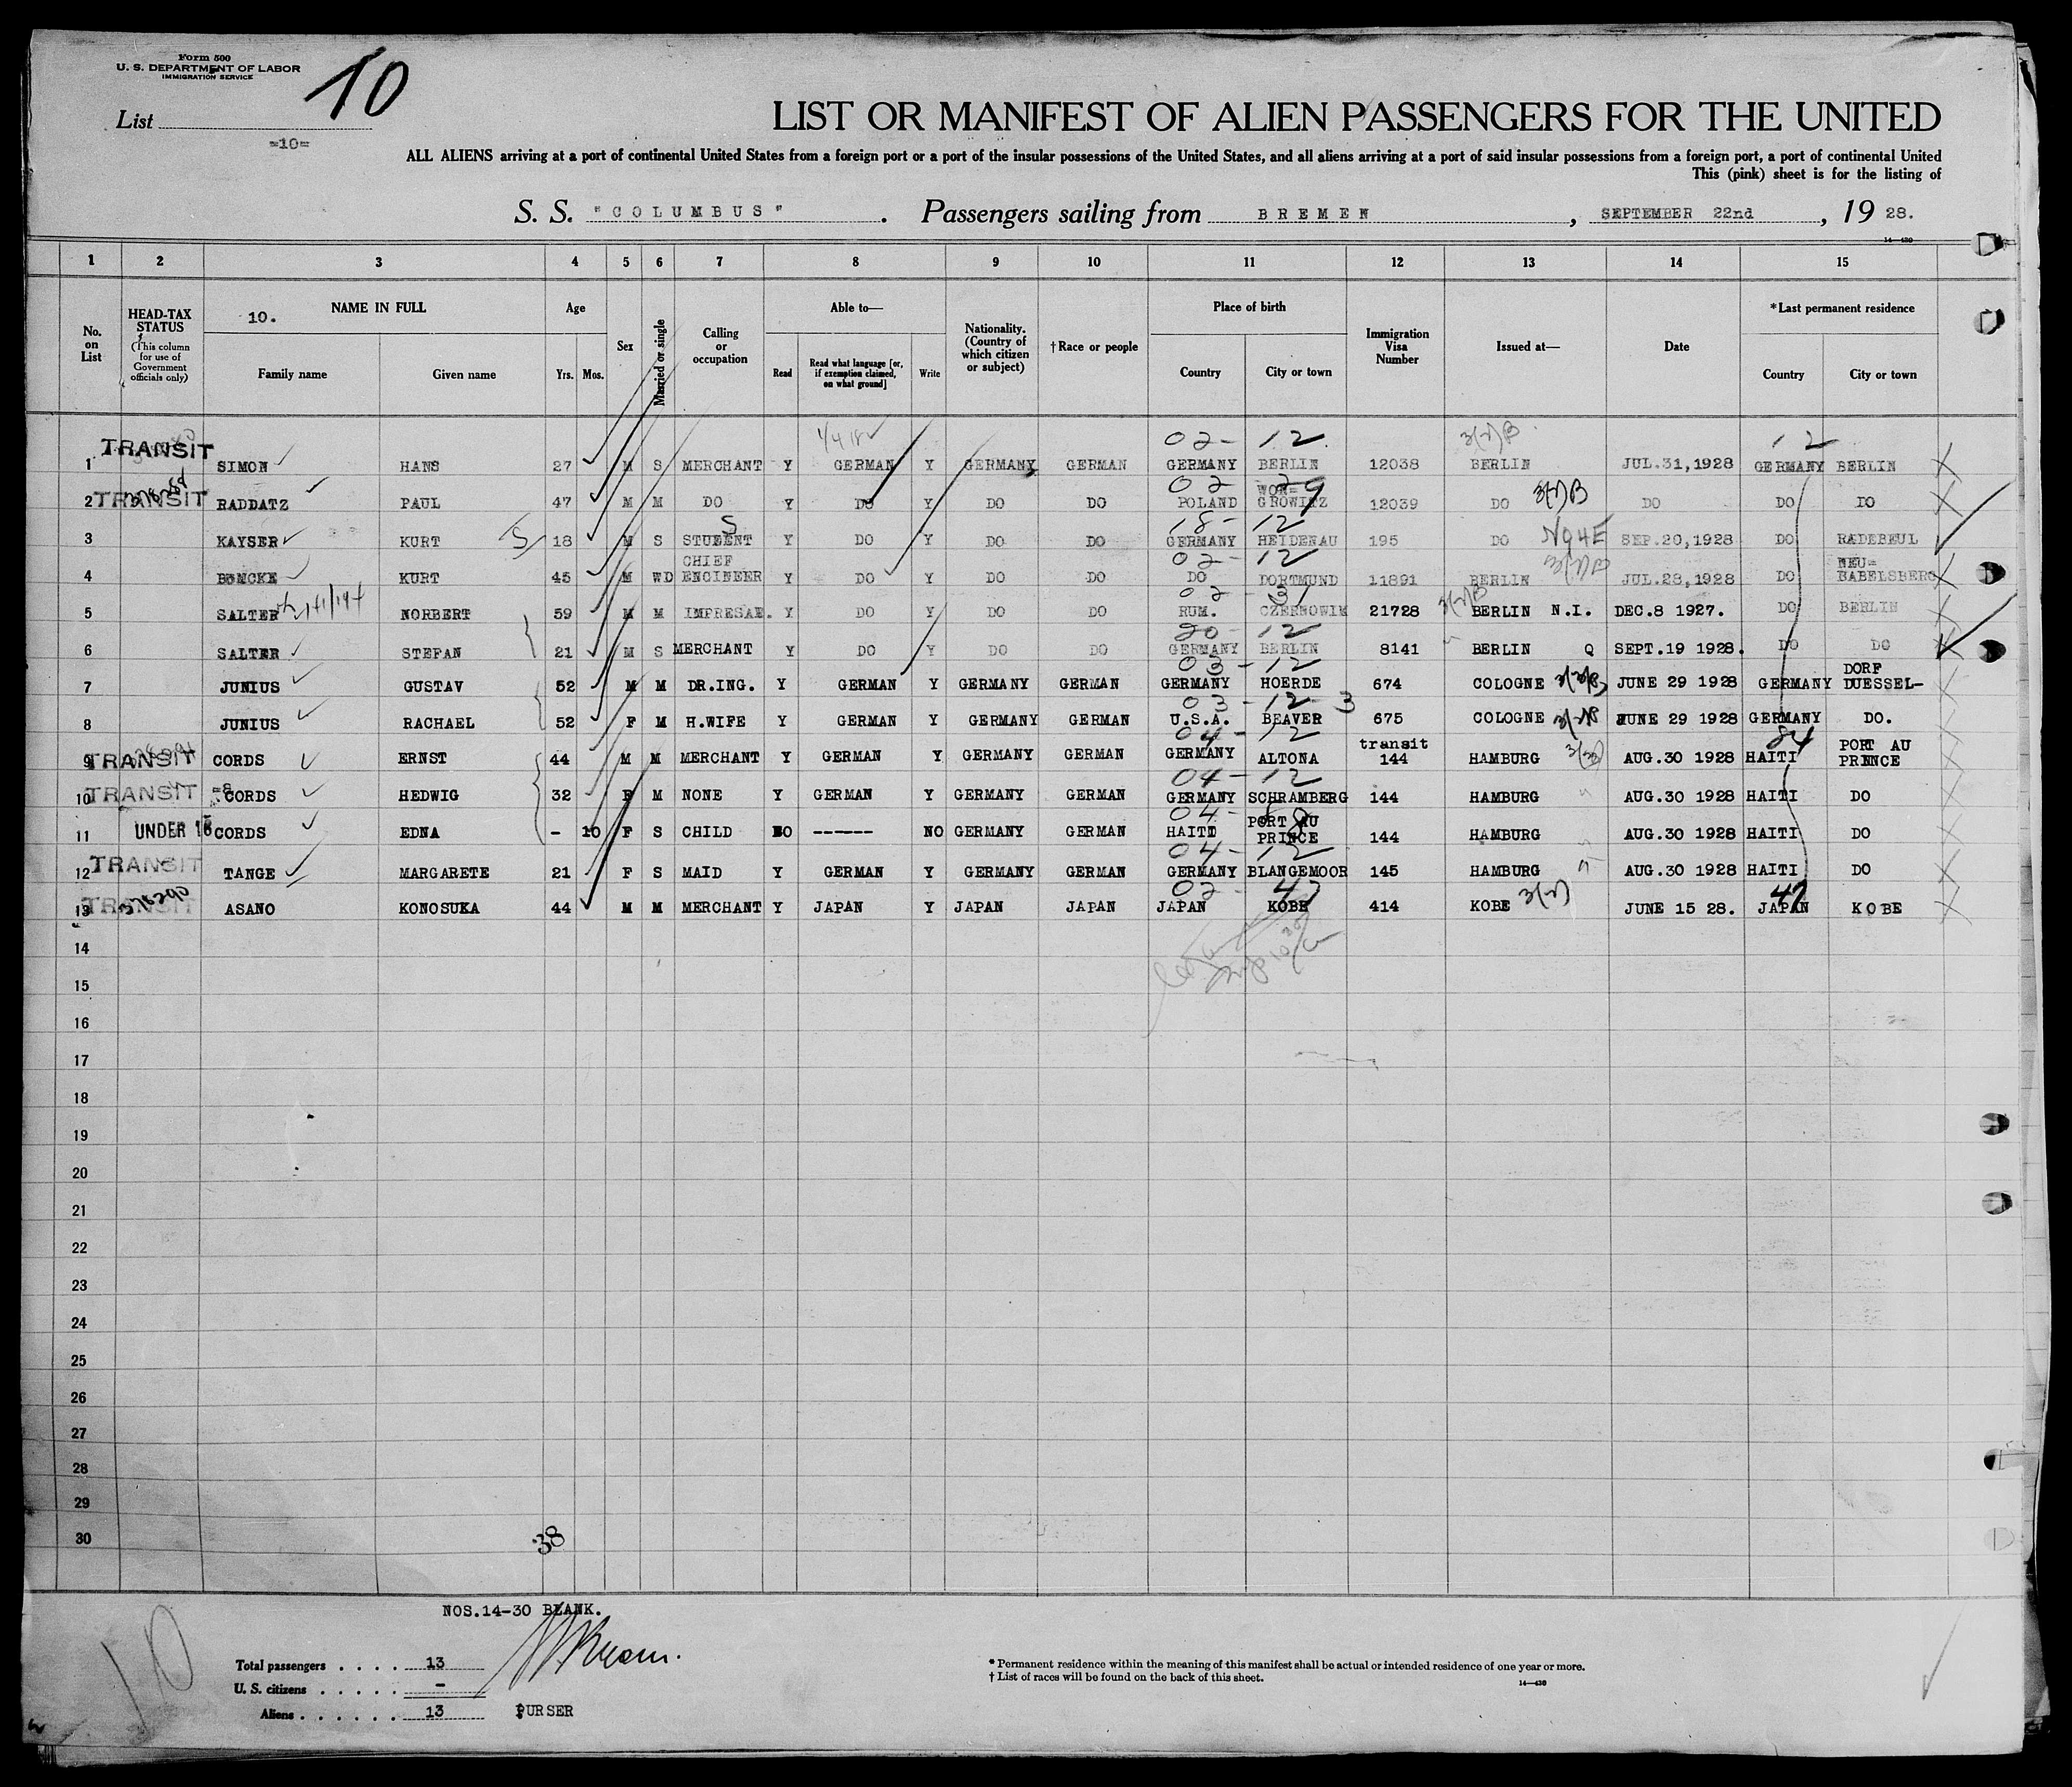 Form 500
U. S. DEPARTMENT OF LABOR
IMMIGRATION SERVICE
10
List
=10=
LIST OR MANIFEST OF ALIEN PASSENGERS FOR THE UNITED
ALL ALIENS arriving at a port of continental United States from a foreign port or a port of the insular possessions of the United States, and all aliens arriving at a port of said insular possessions from a foreign port, a port of continental United
This (pink) sheet is for the listing of
S. S. "COLUMBUS" . Passengers sailing from BREMEN , SEPTEMBER 22nd , 19 28.
14—430
1 2 3 4 5 6 7 8 9 10 11 12 13 14 15
No. on List
HEAD-TAX STATUS (This column for use of Government officials only)
10. NAME IN FULL
Family name Given name
Age
Yrs. Mos.
Sex
Married or single
Calling or occupation
Able to—
Read Read what language [or, if exemption claimed, on what ground] Write
Nationality. (Country of which citizen or subject)
†Race or people
Place of birth
Country City or town
Immigration Visa Number
Issued at—
Date
*Last permanent residence
Country City or town
02- 12. 3(2)B 12
TRANSIT
1 SIMON HANS 27 M S MERCHANT Y GERMAN Y GERMANY GERMAN GERMANY BERLIN 12038 BERLIN JUL.31,1928 GERMANY BERLIN
02 29
TRANSIT
2 RADDATZ PAUL 47 M M DO Y DO Y DO DO POLAND WON=GROWITZ 12039 DO 3(2)B DO DO DO
18- 12
3 KAYSER KURT S 18 M S STUDENT Y DO Y DO DO GERMANY HEIDENAU 195 DO NQ4E SEP.20,1928 DO RADEBEUL
02- 12
4 BÖMCKE KURT 45 M WD CHIEF ENGINEER Y DO Y DO DO DO DORTMUND 11891 BERLIN 3(2)B JUL.28,1928 DO NEU=BABELSBERG
02- 31
5 SALTER NORBERT 59 M M IMPRESAR. Y DO Y DO DO RUM. CZERNOWIM 21728 3(2)B BERLIN N.I. DEC.8 1927. DO BERLIN
20- 12
6 SALTER STEFAN 21 M S MERCHANT Y DO Y DO DO GERMANY BERLIN 8141 BERLIN Q SEPT.19 1928. DO DO
03-12
7 JUNIUS GUSTAV 52 M M DR.ING. Y GERMAN Y GERMANY GERMAN GERMANY HOERDE 674 COLOGNE JUNE 29 1928 GERMANY DORF DUESSEL-
03-12 3
8 JUNIUS RACHAEL 52 F M H.WIFE Y GERMAN Y GERMANY GERMAN U.S.A. BEAVER 675 COLOGNE JUNE 29 1928 GERMANY DO.
04-12 84
9 TRANSIT CORDS ERNST 44 M M MERCHANT Y GERMAN Y GERMANY GERMAN GERMANY ALTONA transit 144 HAMBURG AUG.30 1928 HAITI PORT AU PRINCE
04-12
10 TRANSIT CORDS HEDWIG 32 F M NONE Y GERMAN Y GERMANY GERMAN GERMANY SCHRAMBERG 144 HAMBURG AUG.30 1928 HAITI DO
04-
11 UNDER 16 CORDS EDNA - 10 F S CHILD NO ------ NO GERMANY GERMAN HAITI PORT AU PRINCE 144 HAMBURG AUG.30 1928 HAITI DO
04-12
TRANSIT
12 TANGE MARGARETE 21 F S MAID Y GERMAN Y GERMANY GERMAN GERMANY BLANGEMOOR 145 HAMBURG AUG.30 1928 HAITI DO
02- 47 47
13 TRANSIT ASANO KONOSUKA 44 M M MERCHANT Y JAPAN Y JAPAN JAPAN JAPAN KOBE 414 KOBE 3(2) JUNE 15 28. JAPAN KOBE
14
15
16
17
18
19
20
21
22
23
24
25
26
27
28
29
30
38
NOS.14-30 BLANK.
10
Total passengers . . . . 13
U. S. citizens . . . . . -
Aliens . . . . . . 13
PURSER
* Permanent residence within the meaning of this manifest shall be actual or intended residence of one year or more.
† List of races will be found on the back of this sheet.
14—430